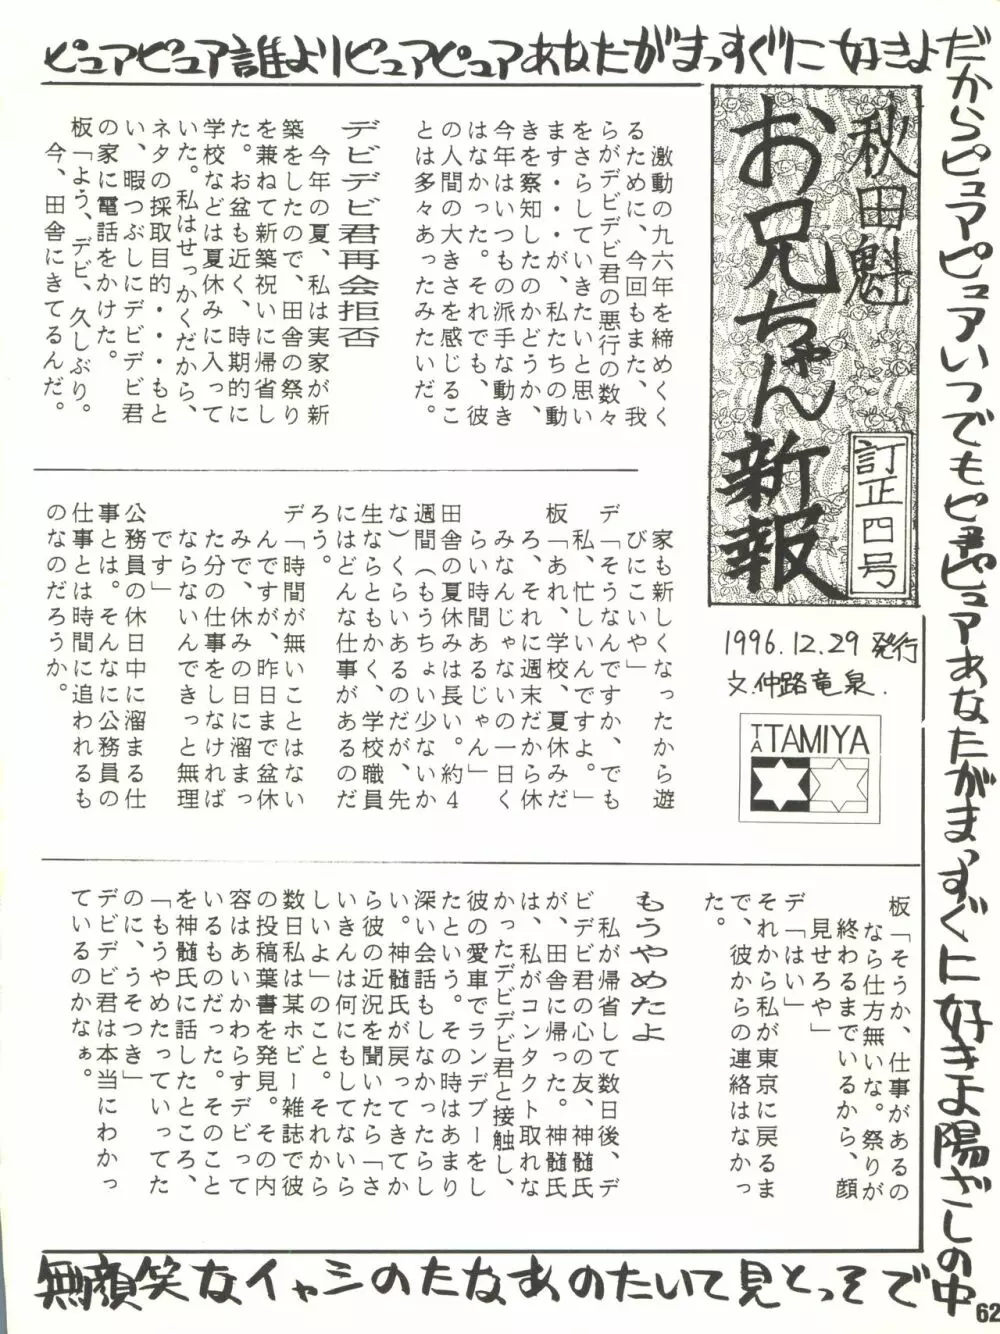 ピュアピュア誰よりピュアピュアあなたがまっすぐに好きよ
だからピュアピュアいつでもピュアピュアあなたがまっすぐに好きよ陽ざしの中
でそっと見ていたいのあなたのシャイな笑顔無
秋田魁
お兄ちゃん新報
訂正四号
1996.12.29発行
文.仲路竜泉.
TA TAMIYA
激動の九六年を締めくく
るために、今回もまた、我
らがデビデビ君の悪行の数々
をさらしていきたいと思い
ます・・・が、私たちの動
きを察知したのかどうか、
今年はいつもの派手な動き
はなかった。それでも、彼
の人間の大きさを感じるこ
とは多々あったみたいだ。
デビデビ君再会拒否
今年の夏、私は実家が新
築をしたので、田舎の祭り
を兼ねて新築祝いに帰省し
た。お盆も近く、時期的に
学校などは夏休みに入って
いた。私はせっかくだから、
ネタの採取目的・・・もと
い、暇つぶしにデビデビ君
の家に電話をかけた。
板「よう、デビ、久しぶり。
今、田舎にきてるんだ。
家も新しくなったから遊
びにこいや」
デ「そうなんですか、でも
私、忙しいんですよ。」
板「あれ、学校、夏休みだ
ろ、それに週末だから休
みなんじゃないの一日く
らい時間あるじゃん」
田舎の夏休みは長い。約4
週間（もうちょい少ないか
な）くらいあるのだが、先
生ならともかく、学校職員
にはどんな仕事があるのだ
ろう。
デ「時間が無いことはない
んですが、昨日まで盆休
みで、休みの日に溜まっ
た分の仕事をしなければ
ならないんできっと無理
です」
公務員の休日中に溜まる仕
事とは。そんなに公務員の
仕事とは時間に追われるも
のなのだろうか。
板「そうか、仕事があるの
なら仕方無いな。祭りが
終わるまでいるから、顔
見せろや」
デ「はい」
それから私が東京に戻るま
で、彼からの連絡はなかっ
た。
もうやめたよ
私が帰省して数日後、デ
ビデビ君の心の友、神髄氏
が、田舎に帰った。神髄氏
は、私がコンタクト取れな
かったデビデビ君と接触し、
彼の愛車でランデブーをし
たという。その時はあまり
深い会話もしなかったらし
い。神髄氏が戻ってきてか
ら彼の近況を聞いたら「さ
いきんは何にもしてないら
しいよ」のこと。それから
数日私は某ホビー雑誌で彼
の投稿葉書を発見。その内
容はあいかわらずデビって
いるものだった。そのこと
を神髄氏に話したところ、
「もうやめたっていってた
のに、うそつき」
デビデビ君は本当にわかっ
ているのかなぁ。
62